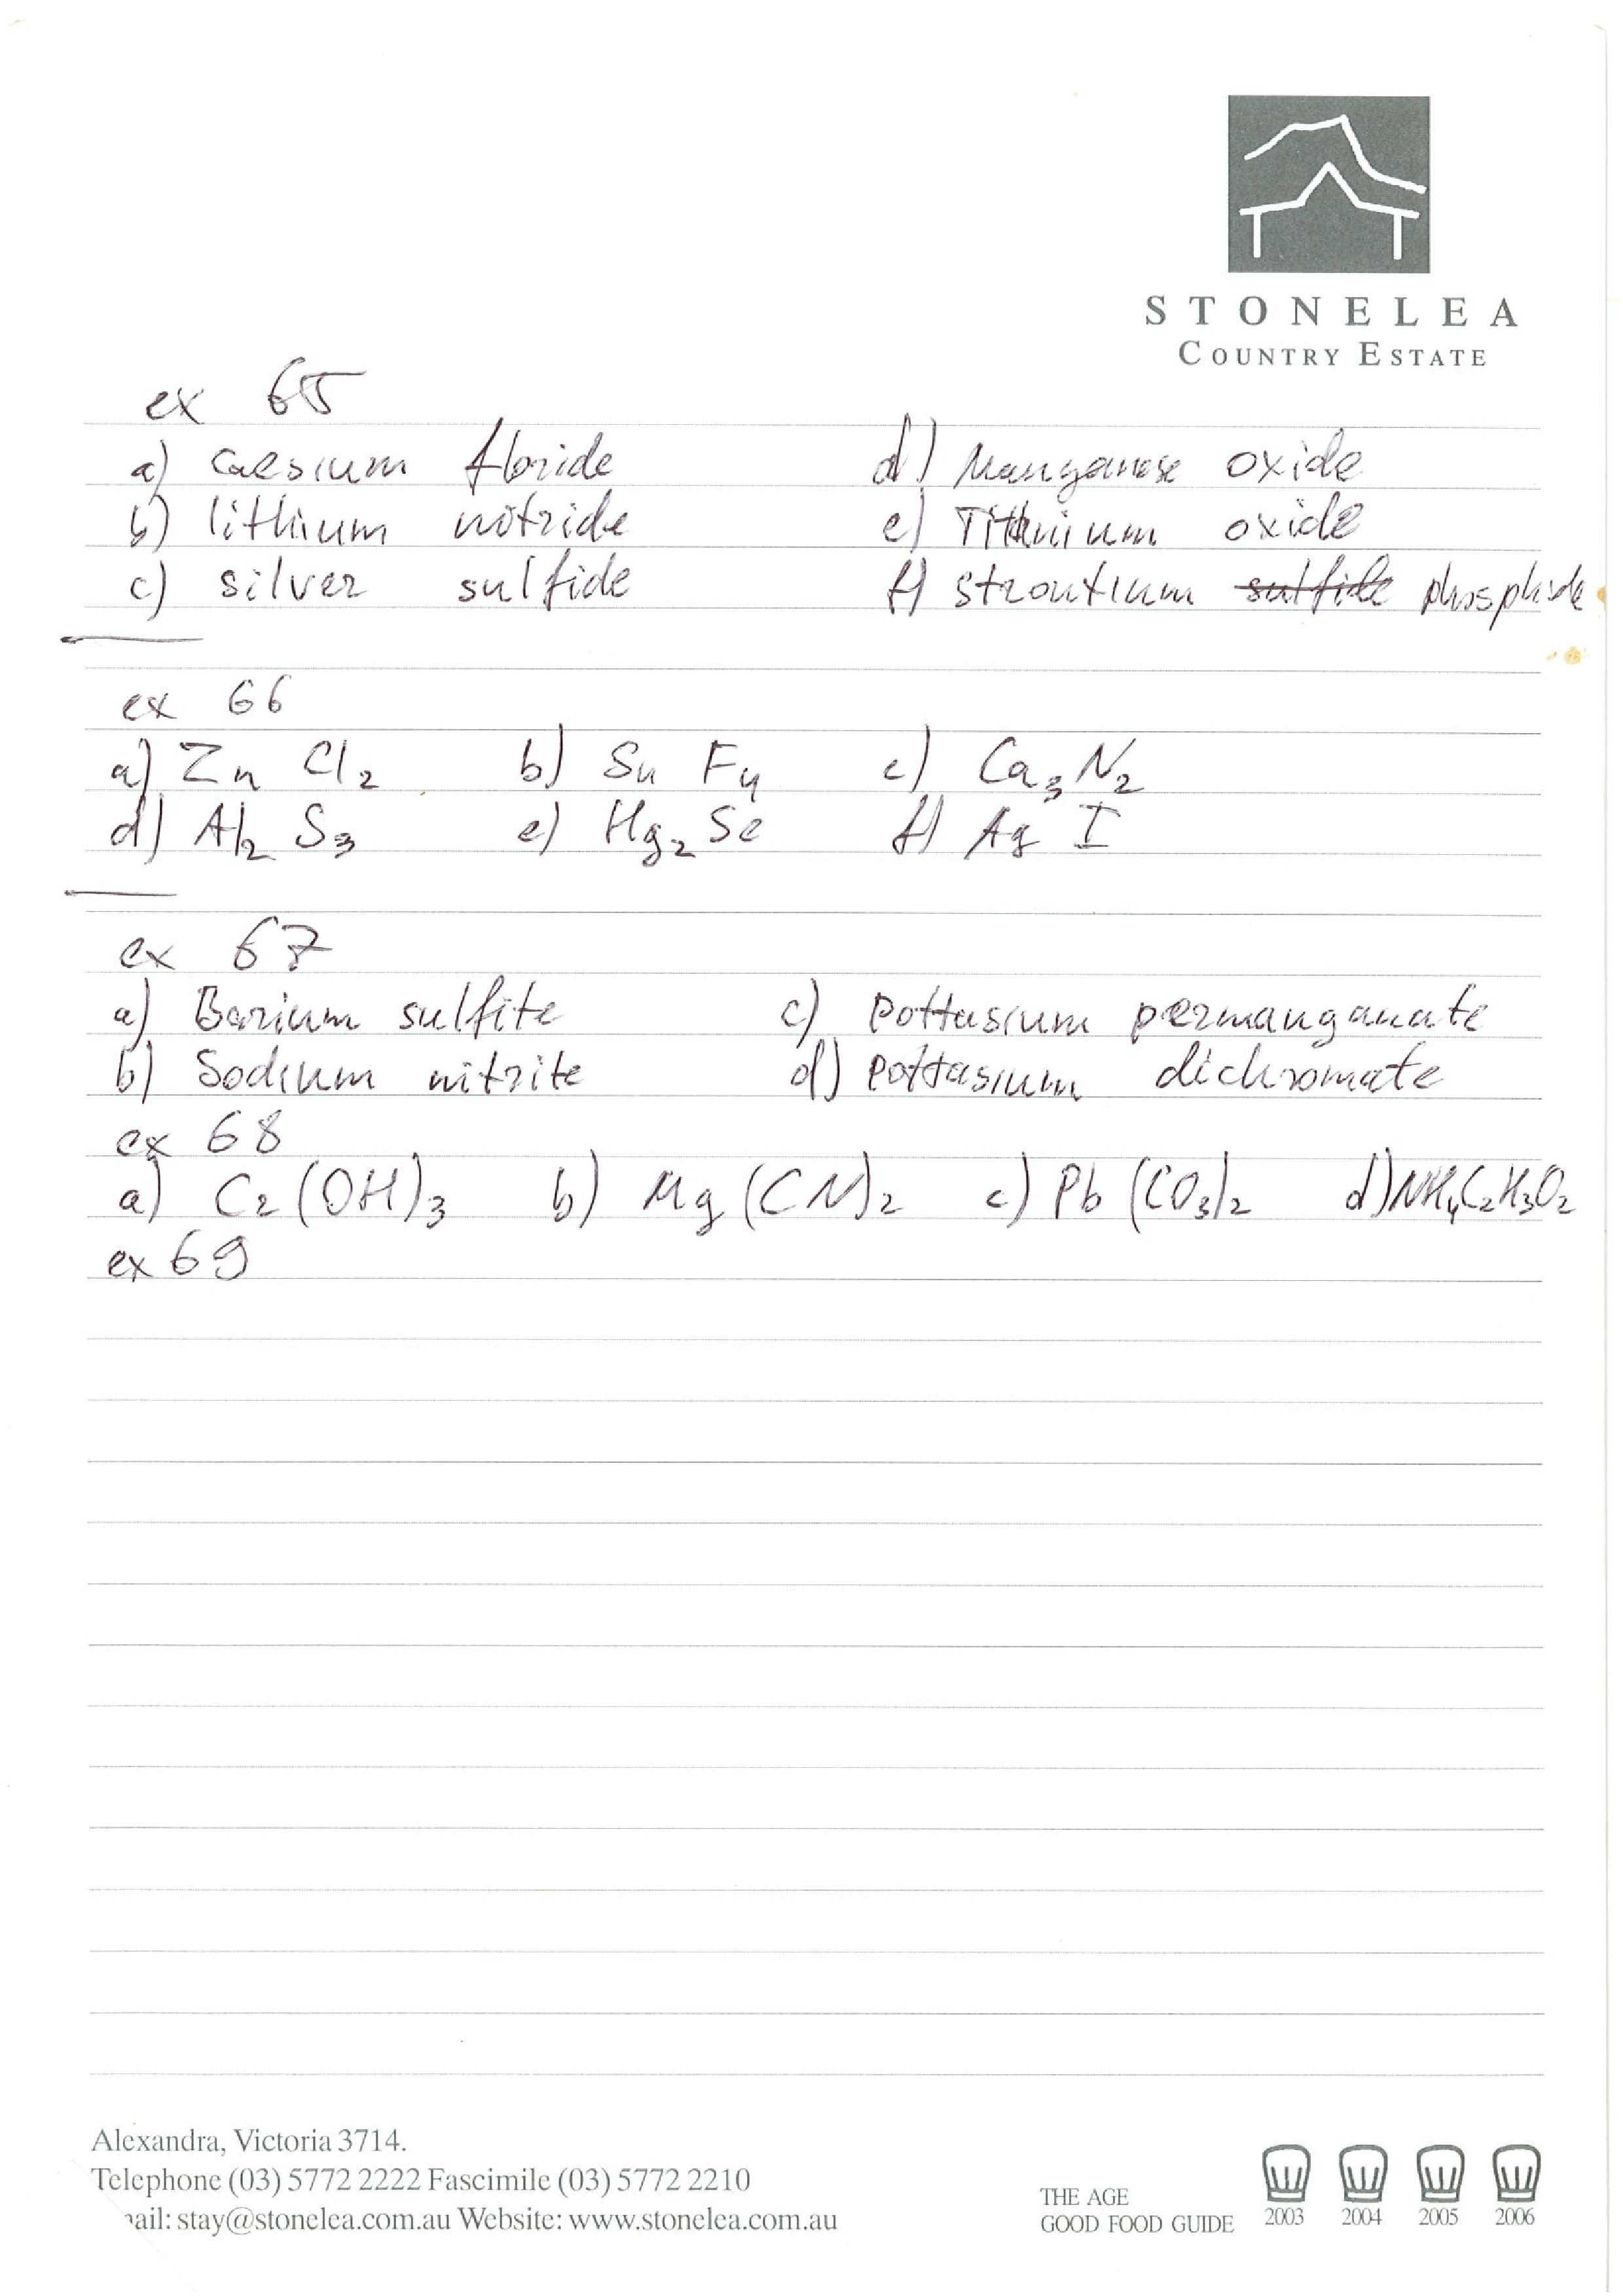 STONELEA
COUNTRY ESTATE
ex 65
a) caesium floride d) Manganese oxide
b) lithium nitride e) Titanium oxide
c) silver sulfide f) strontium sulfide phosphide
ex 66
a) Zn Cl2 b) Sn F4 c) Ca3 N2
d) Al2 S3 e) Hg2 Se f) Ag I
ex 67
a) Barium sulfite c) pottasium permanganate
b) Sodium nitrite d) pottasium dichromate
ex 68
a) Cr (OH)3 b) Mg (CN)2 c) Pb (CO3)2 d) NH4C2H3O2
ex 69
Alexandra, Victoria 3714.
Telephone (03) 5772 2222 Fascimile (03) 5772 2210
ail: stay@stonelea.com.au Website: www.stonelea.com.au
THE AGE
GOOD FOOD GUIDE 2003 2004 2005 2006